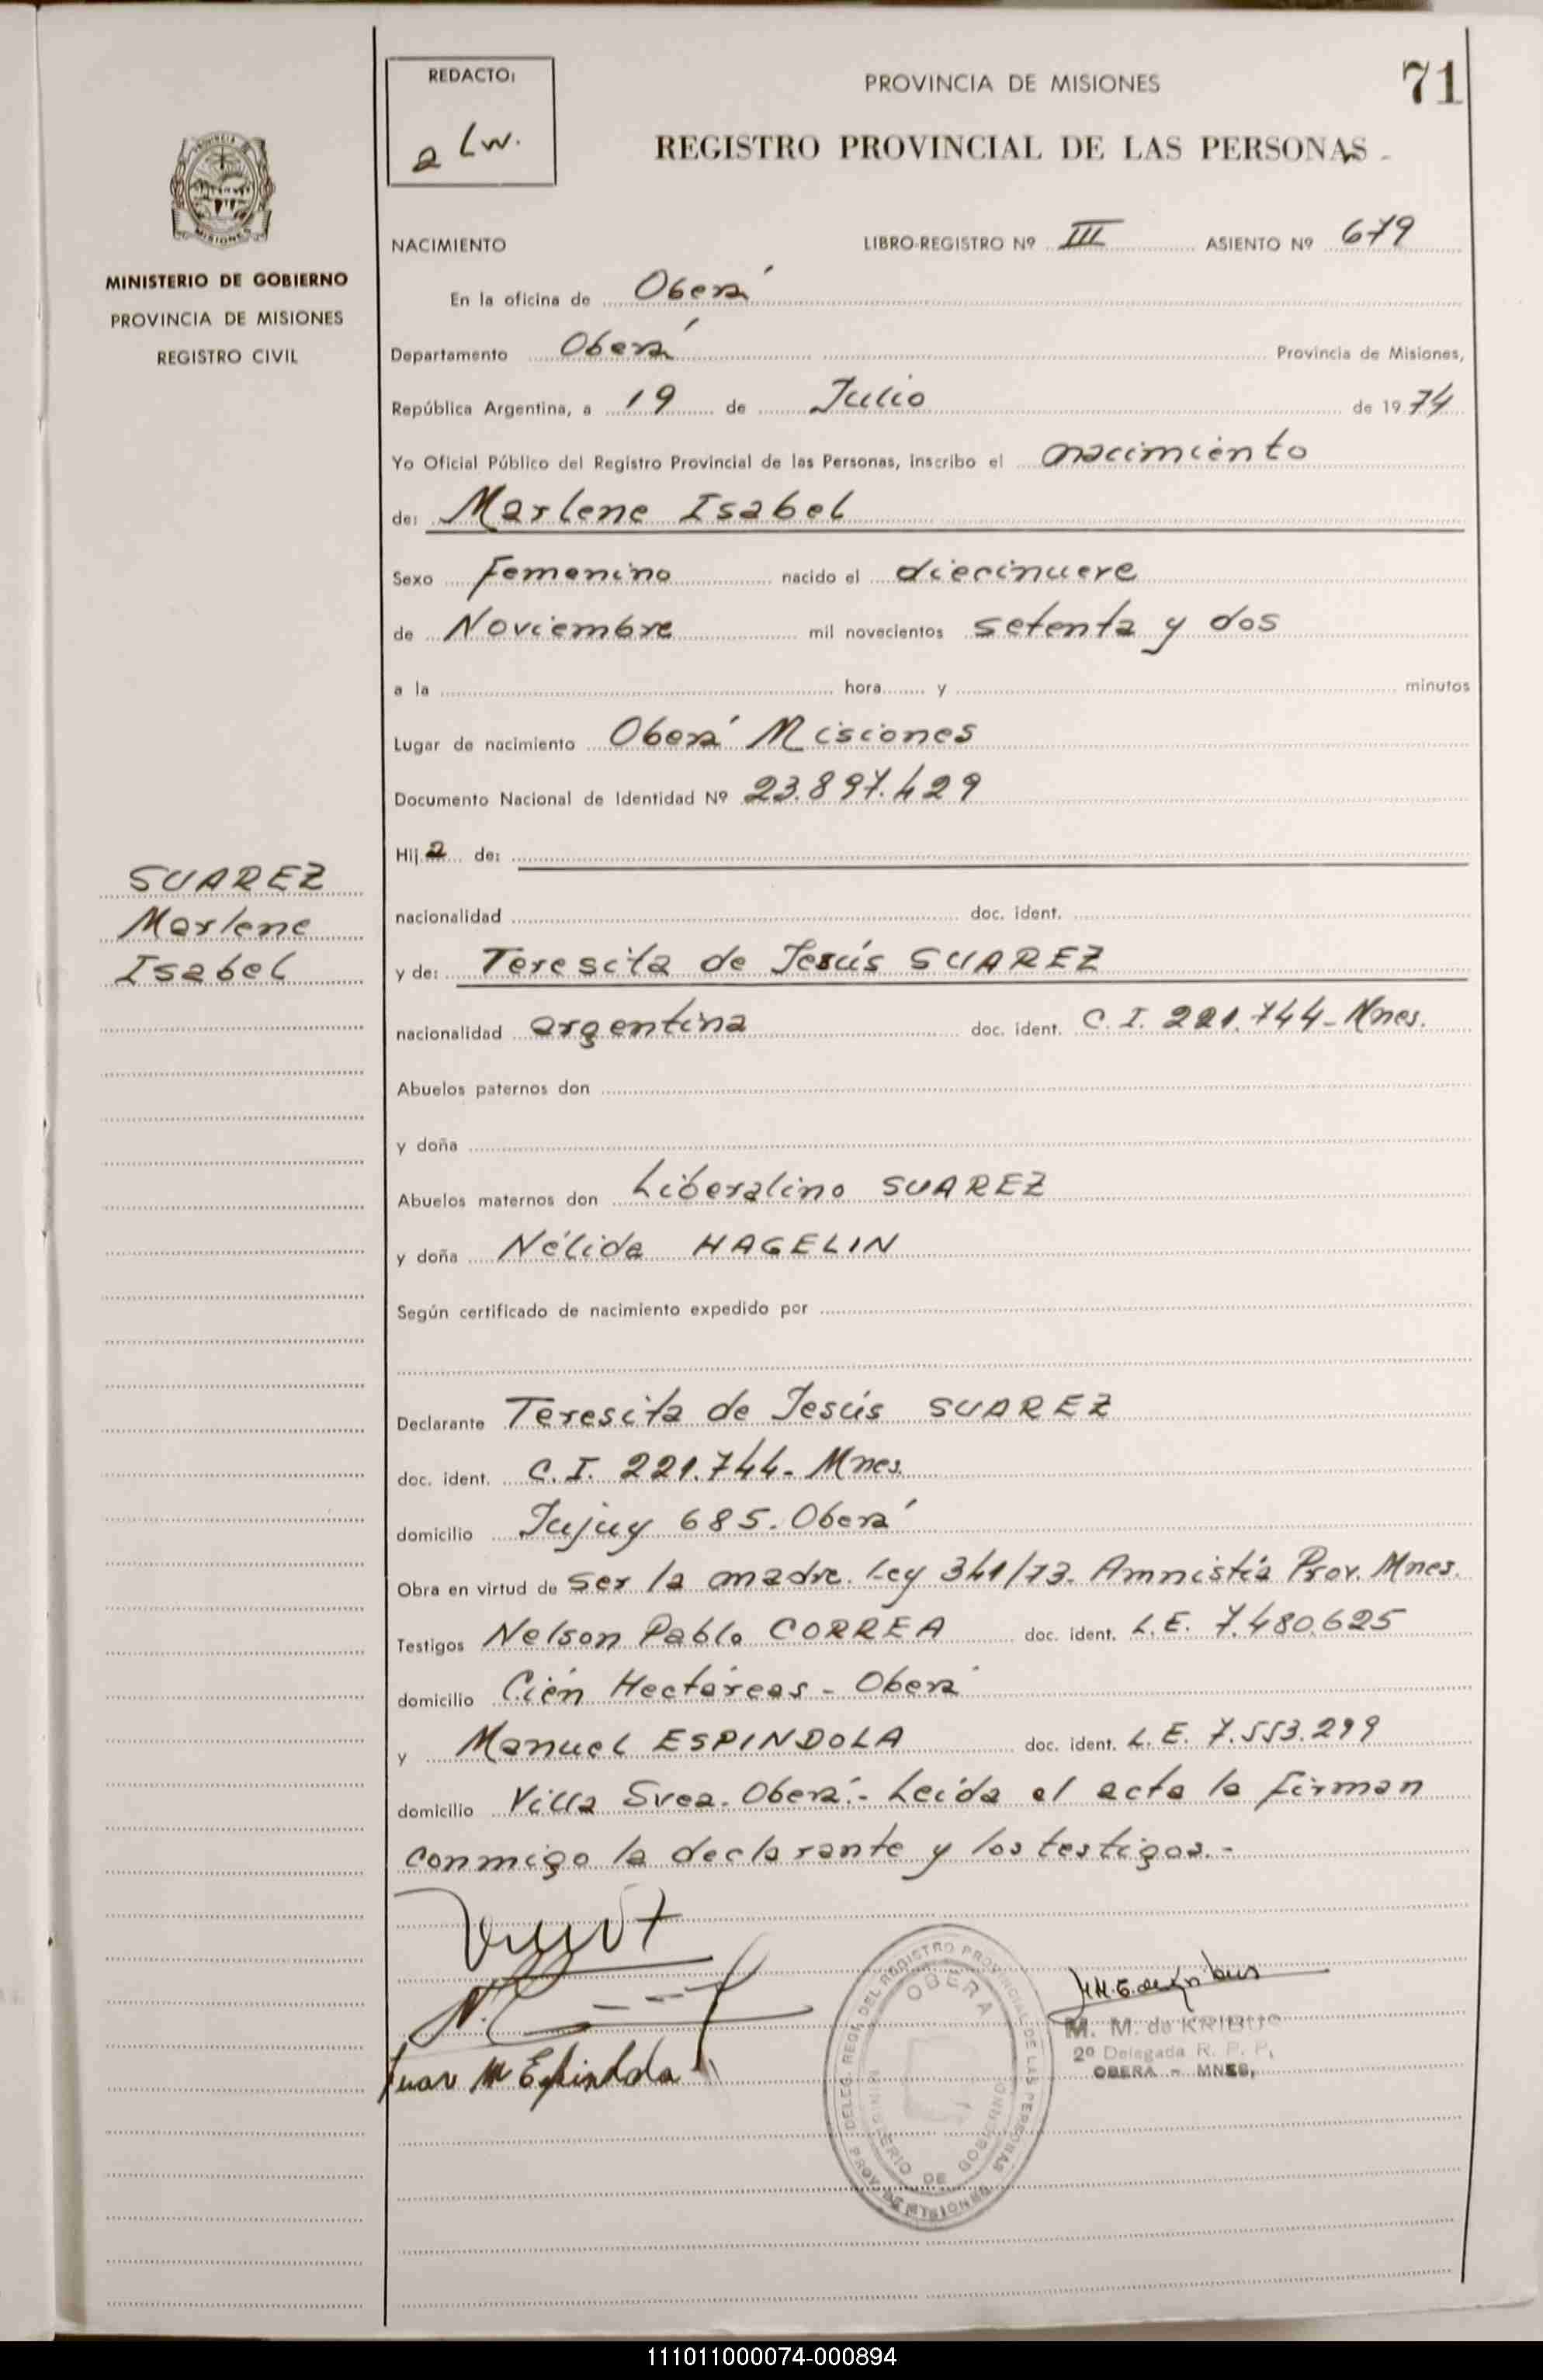 REDACTO:
a Lw.
PROVINCIA DE MISIONES
71
REGISTRO PROVINCIAL DE LAS PERSONAS
MISIONES
MINISTERIO DE GOBIERNO
PROVINCIA DE MISIONES
REGISTRO CIVIL
NACIMIENTO LIBRO-REGISTRO Nº III ASIENTO Nº 679
En la oficina de Oberá
Departamento Oberá Provincia de Misiones,
República Argentina, a 19 de Julio de 1974
Yo Oficial Público del Registro Provincial de las Personas, inscribo el nacimiento
de: Marlene Isabel
Sexo Femenino nacido el diecinueve
de Noviembre mil novecientos setenta y dos
a la hora y minutos
Lugar de nacimiento Oberá Misiones
Documento Nacional de Identidad Nº 23.897.429
Hija de:
SUAREZ
Marlene
Isabel
nacionalidad doc. ident.
y de: Teresita de Jesús SUAREZ
nacionalidad argentina doc. ident. C. I. 221.744- Mnes.
Abuelos paternos don
y doña
Abuelos maternos don Liberalino SUAREZ
y doña Nélida HAGELIN
Según certificado de nacimiento expedido por
Declarante Teresita de Jesús SUAREZ
doc. ident. C. I. 221.744- Mnes.
domicilio Jujuy 685. Oberá
Obra en virtud de ser la madre. Ley 341/73. Amnistía Prov. Mnes.
Testigos Nelson Pablo CORREA doc. ident. L. E. 7.480.625
domicilio Cién Hectáreas - Oberá
y Manuel ESPINDOLA doc. ident. L. E. 7.553.299
domicilio Villa Svea. Oberá.- Leída el acta la firman
conmigo la declarante y los testigos.-
Juan M Espindola
DELEG. REGL. DEL REGISTRO PROVINCIAL DE LAS PERSONAS
OBERA
MINISTERIO DE GOBIERNO
PROV. DE MISIONES
M. M. de KRIBUS
2º Delegada R. P. P.
OBERA - MNES,
111011000074-000894